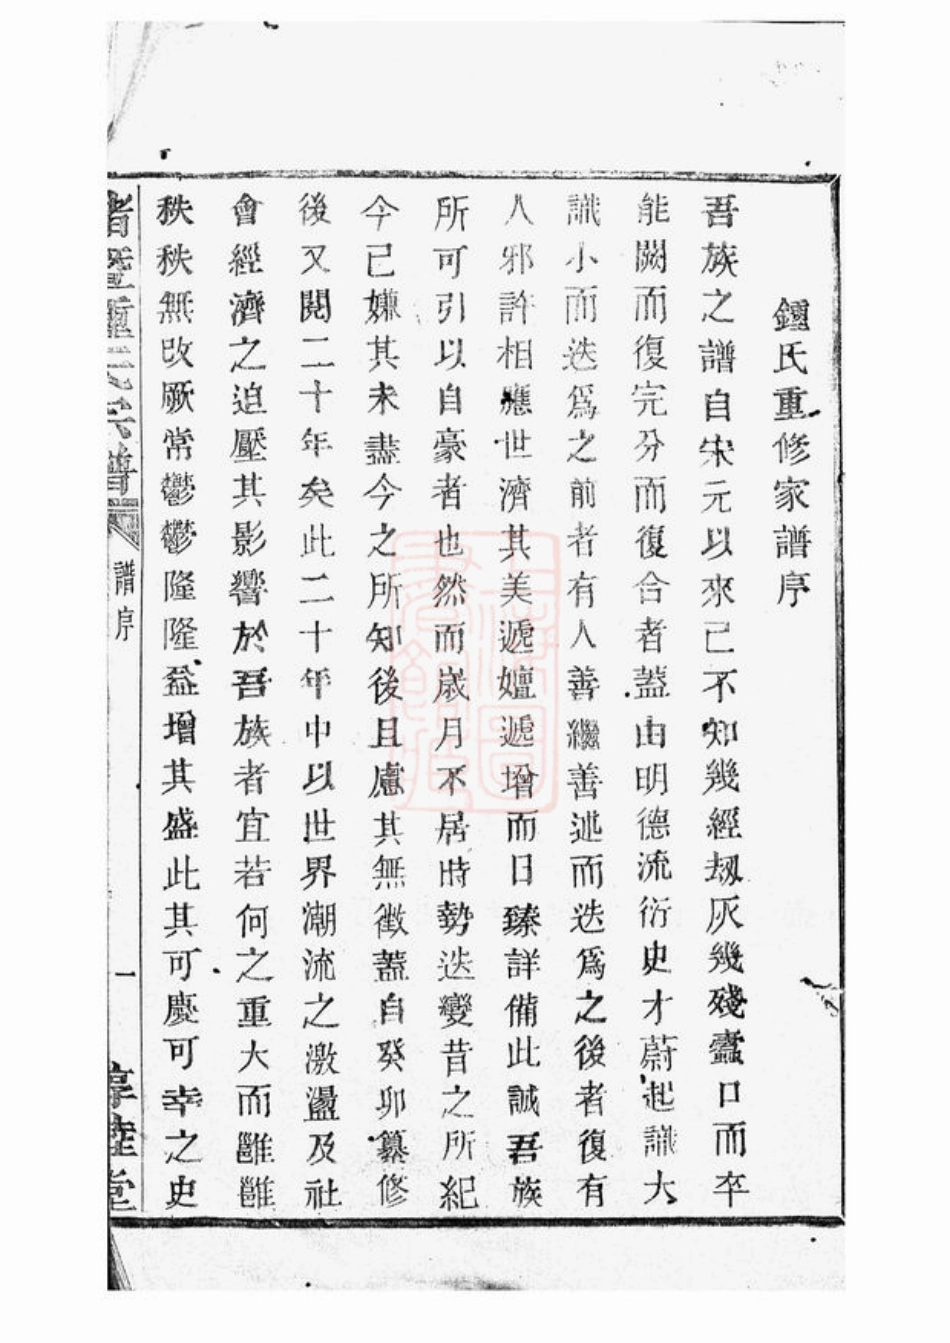 鍾氏重修家譜序
吾族之譜自宋元以來已不知幾經刼灰幾殘蠹口而卒
能闕而復完分而復合者蓋由明德流衍史才蔚起識大
識小而迭爲之前者有人善繼善述而迭爲之後者復有
人邪許相應世濟其美遞嬗遞增而日臻詳備此誠吾族
所可引以自豪者也然而歲月不居時勢迭變昔之所紀
今已嫌其未盡今之所知後且慮其無徵蓋自癸卯纂修
後又閱二十年矣此二十年中以世界潮流之激盪及社
會經濟之迫壓其影響於吾族者宜若何之重大而雝雝
秩秩無改厥常鬱鬱隆隆益增其盛此其可慶可幸之史
氏宗譜
譜序
一
惇睦堂